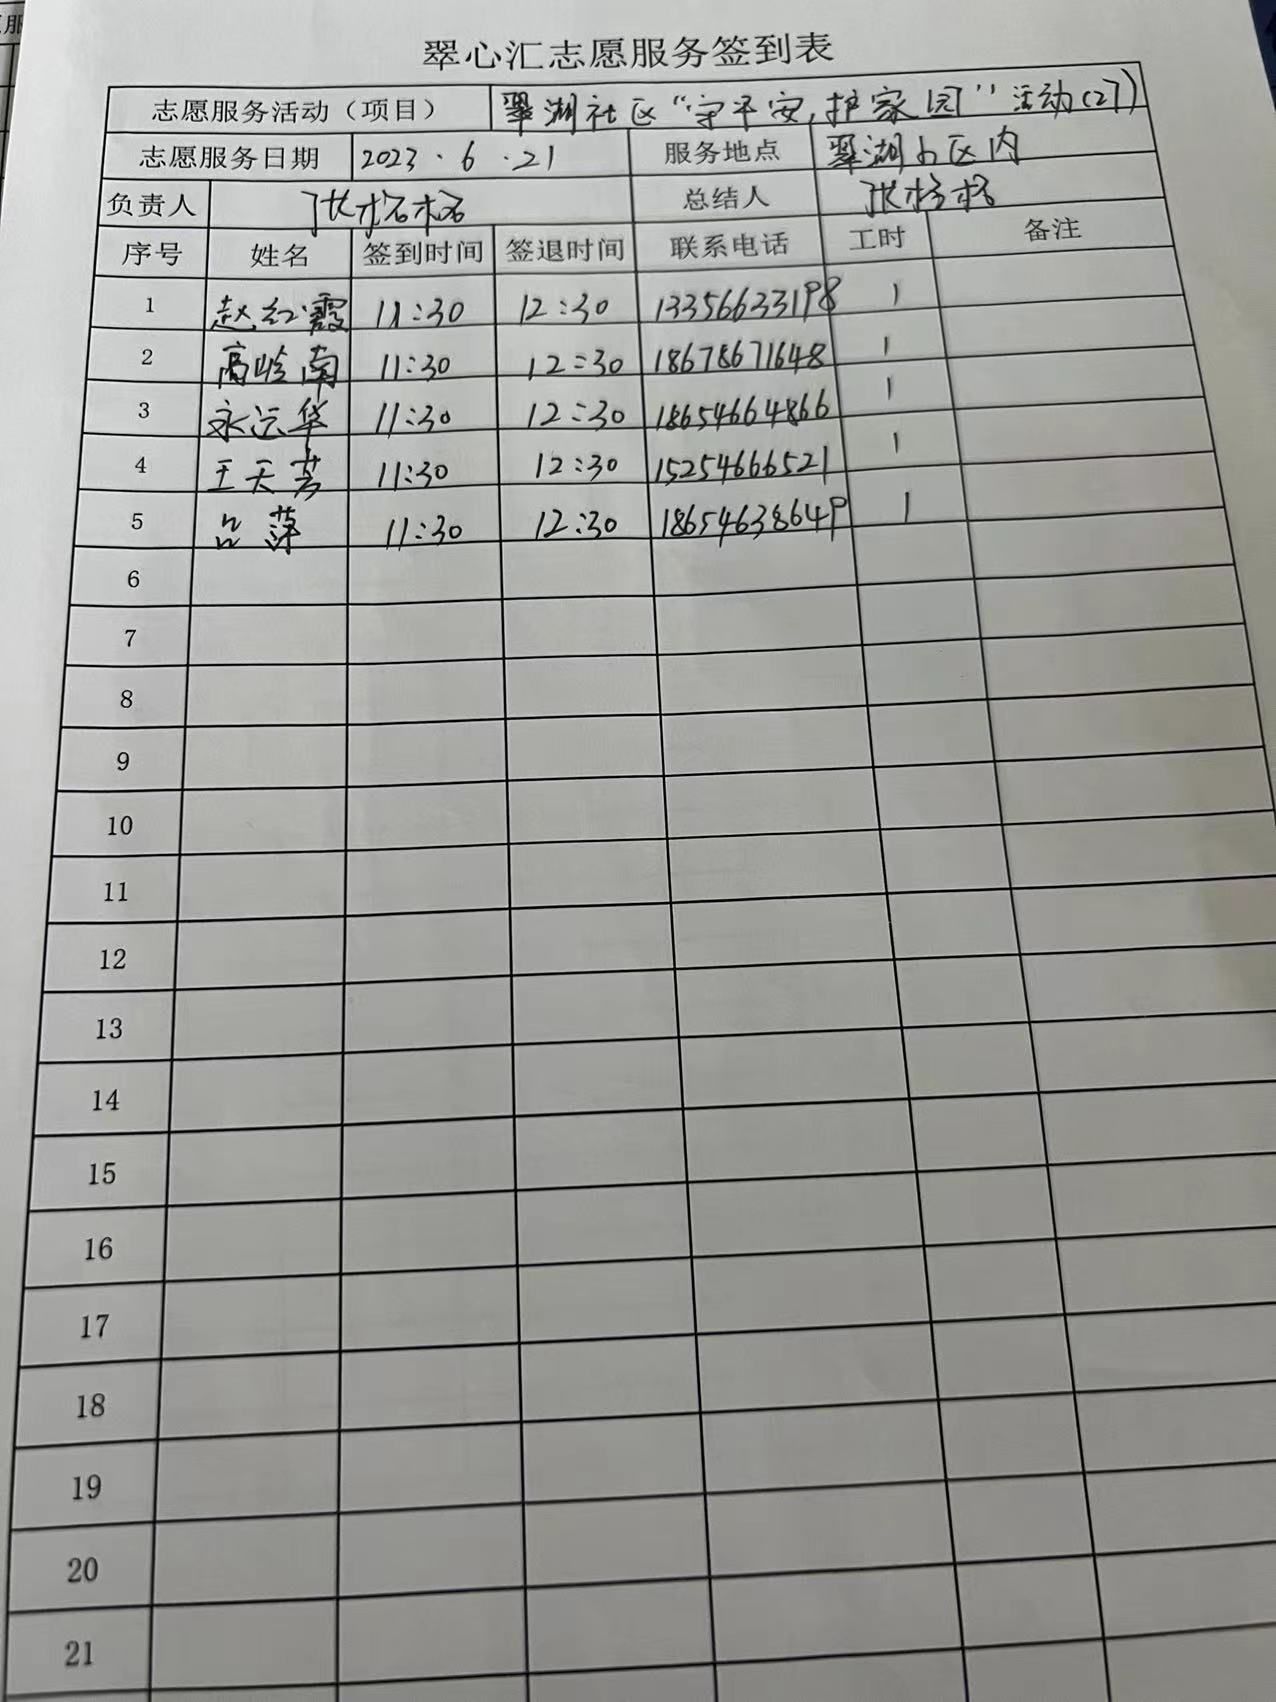 翠心汇志愿服务签到表
志愿服务活动（项目） 翠湖社区“守平安,护家园”活动(27)
志愿服务日期 2023.6.21 服务地点 翠湖小区内
负责人 张格格 总结人 张格格
序号 姓名 签到时间 签退时间 联系电话 工时 备注
1 赵红霞 11:30 12:30 13356633198 1
2 高岭南 11:30 12:30 18678671648 1
3 永运华 11:30 12:30 18654664866 1
4 王天芳 11:30 12:30 15254666521 1
5 吕萍 11:30 12:30 18654638649 1
6
7
8
9
10
11
12
13
14
15
16
17
18
19
20
21